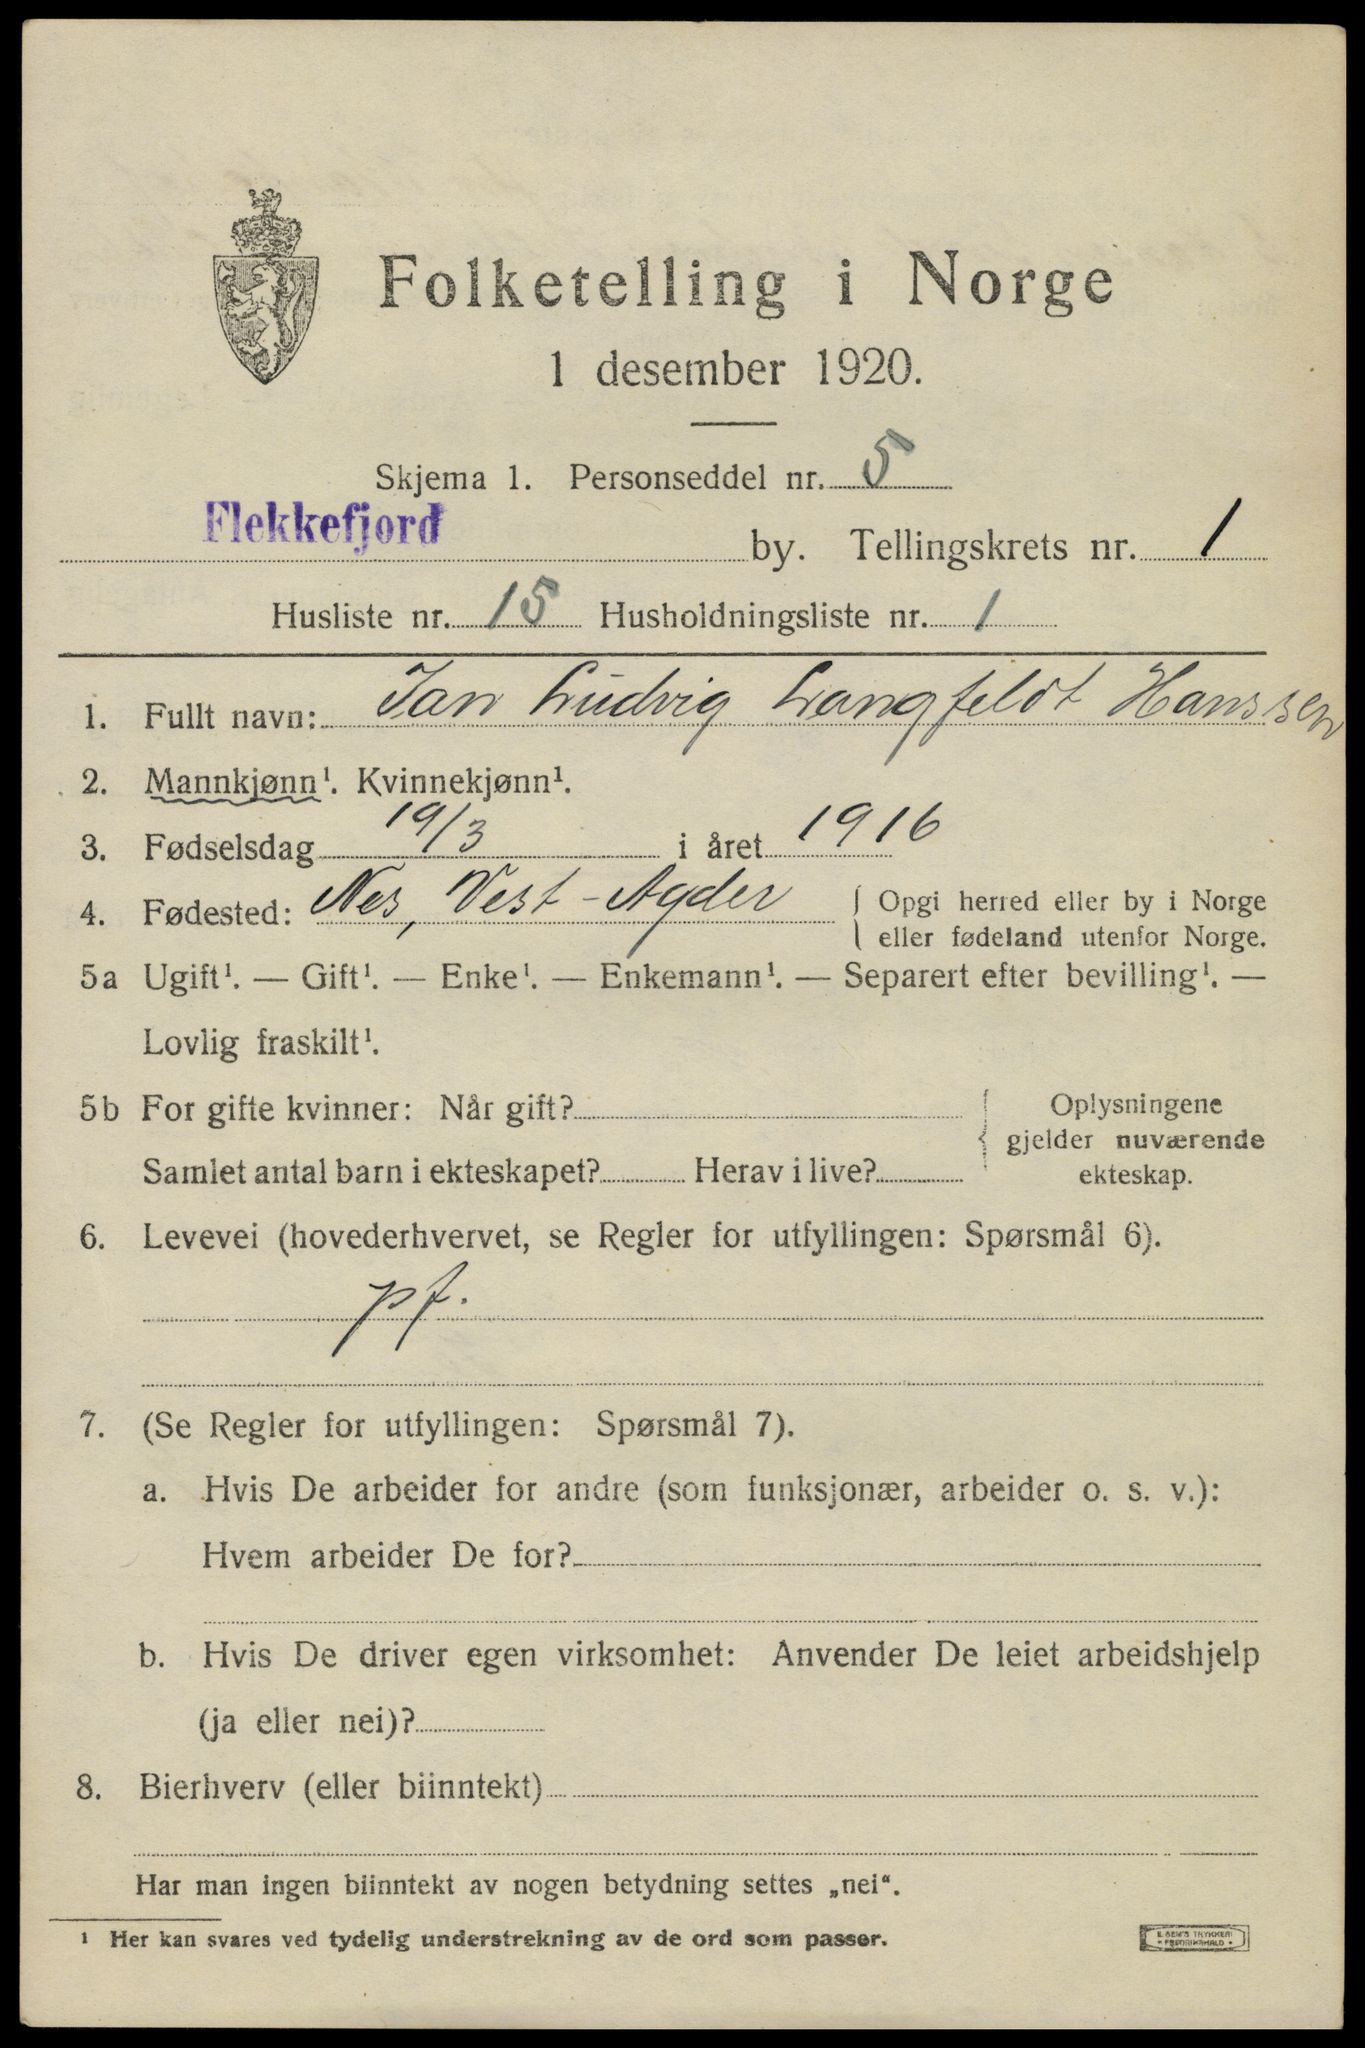 Folketelling i Norge
1 desember 1920.
Skjema 1. Personseddel nr. 5
Flekkefjord by. Tellingskrets nr. 1
Husliste nr. 15 Husholdningsliste nr. 1
1. Fullt navn: Jan Ludvig Langfeldt Hanssen
2. Mannkjønn¹. Kvinnekjønn¹.
3. Fødselsdag 19/3 i året 1916
4. Fødested: Nes, Vest-Agder { Opgi herred eller by i Norge
eller fødeland utenfor Norge.
5a Ugift¹. — Gift¹. — Enke¹. — Enkemann¹. — Separert efter bevilling¹. —
Lovlig fraskilt¹.
5b For gifte kvinner: Når gift? { Oplysningene
gjelder nuværende
Samlet antal barn i ekteskapet? Herav i live? ekteskap.
6. Levevei (hovederhvervet, se Regler for utfyllingen: Spørsmål 6).
pf.
7. (Se Regler for utfyllingen: Spørsmål 7).
a. Hvis De arbeider for andre (som funksjonær, arbeider o. s. v.):
Hvem arbeider De for?
b. Hvis De driver egen virksomhet: Anvender De leiet arbeidshjelp
(ja eller nei)?
8. Bierhverv (eller biinntekt)
Har man ingen biinntekt av nogen betydning settes „nei“.
¹ Her kan svares ved tydelig understrekning av de ord som passer.
E. SEM'S TRYKKERI
• FREDRIKSHALD •